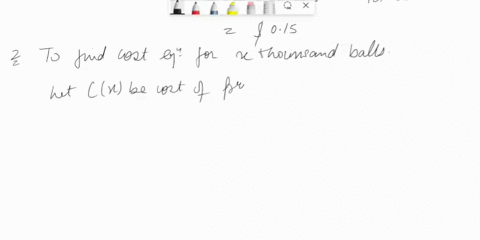 = $ 0.15
2 To find cost eqn for x thousand balls.
Let C(x) be cost of pr